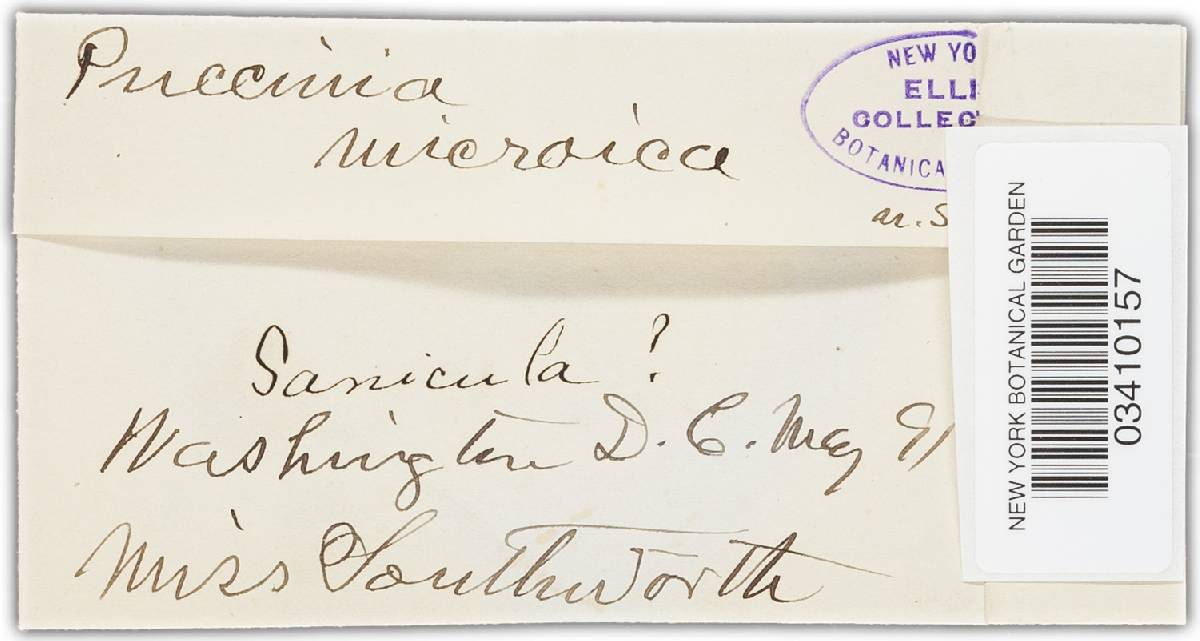 Puccinia
microica
NEW YO
ELLI
COLLEC
BOTANICA
Sanicula ?
Washington D. C. May 91
Miss Southworth
NEW YORK BOTANICAL GARDEN
03410157